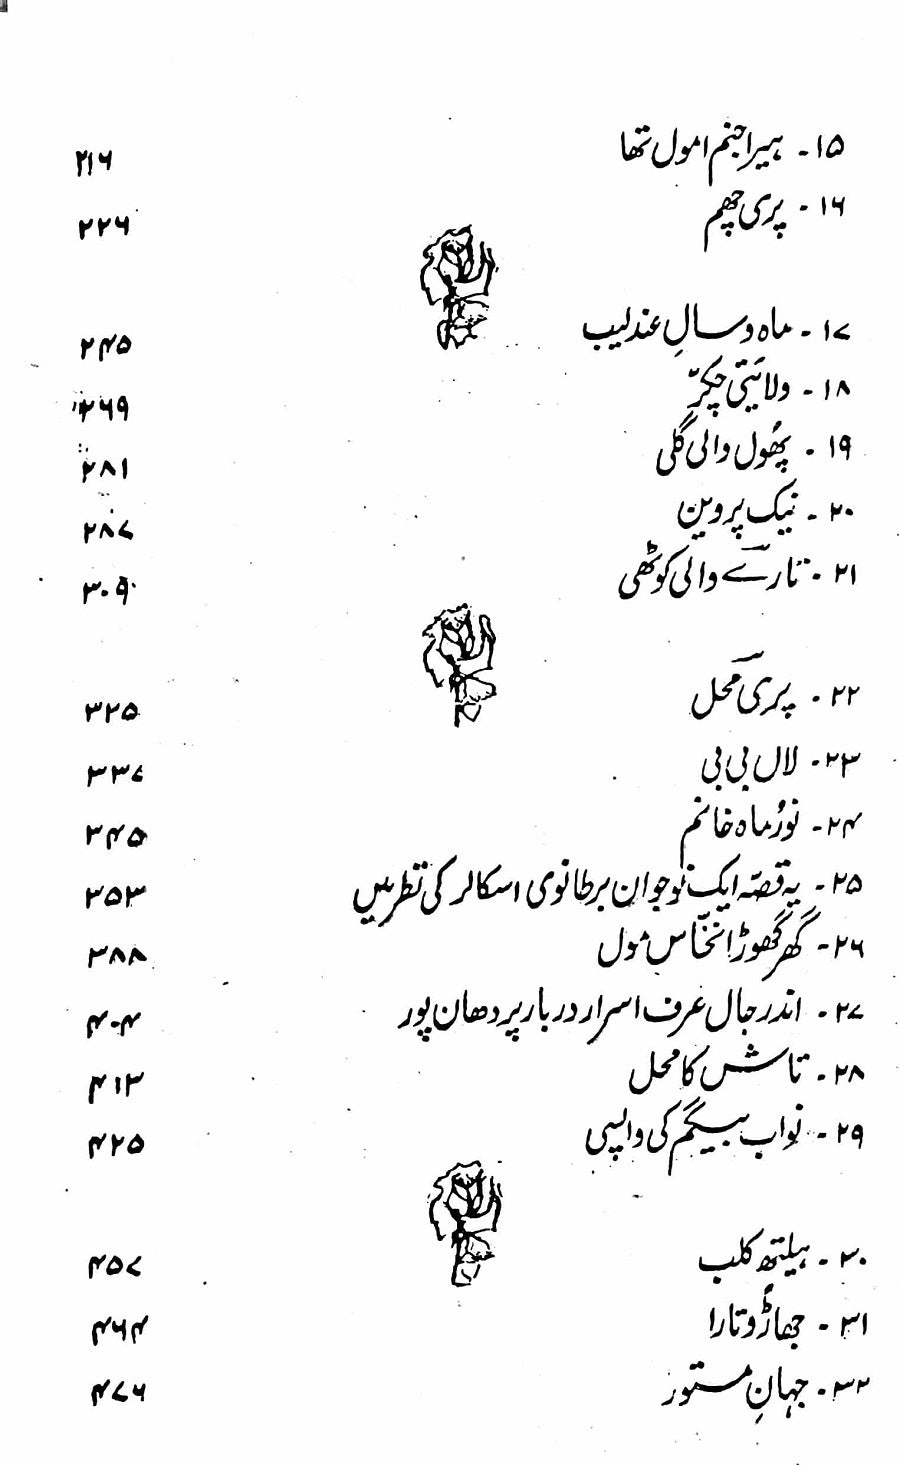 ۱۵ - ہیرا جنم امول تھا ۲۱۶
۱۶ - پری چھم ۲۲۶
۱۷ - ماہ و سالِ عندلیب ۲۴۵
۱۸ - ولایتی چکّر ۲۶۹
۱۹ - پھُول والی گلی ۲۸۱
۲۰ - نیک پروین ۲۸۷
۲۱ - تارے والی کوٹھی ۳۰۹
۲۲ - پری محل ۳۲۵
۲۳ - لال بی بی ۳۳۷
۲۴ - نورُ ماہ خانم ۳۴۵
۲۵ - یہ قصّہ ایک نوجوان برطانوی اسکالر کی نظر میں ۳۵۳
۲۶ - گھر گھوڑا نخّاس مول ۳۸۸
۲۷ - اندر جال عرف اسرار دربار پردھان پور ۴۰۴
۲۸ - تاش کا محل ۴۱۳
۲۹ - نواب بیگم کی واپسی ۴۲۵
۳۰ - ہیلتھ کلب ۴۵۷
۳۱ - جھاڑُو تارا ۴۶۴
۳۲ - جہانِ مستور ۴۷۶